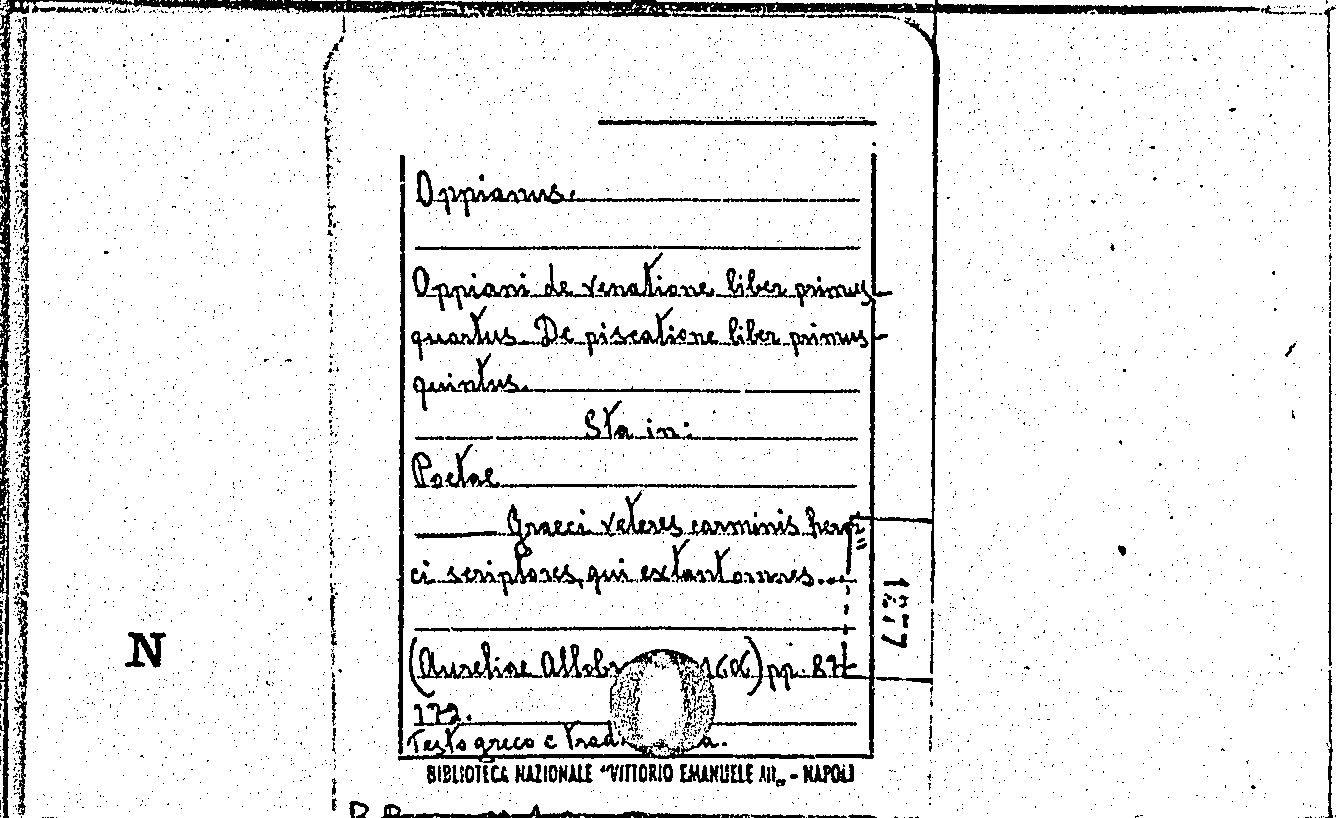 Oppianus.
Oppiani de venatione liber primus-
quartus. De piscatione liber primus-
quintus.
Sta in:
Poetae
Graeci veteres carminis heroi
ci scriptores, qui extant omnes...
(Aureliae Allobr 1606) pp. 87-
172.
Testo greco e trad.
BIBLIOTECA NAZIONALE "VITTORIO EMANUELE III„ - NAPOLI
N